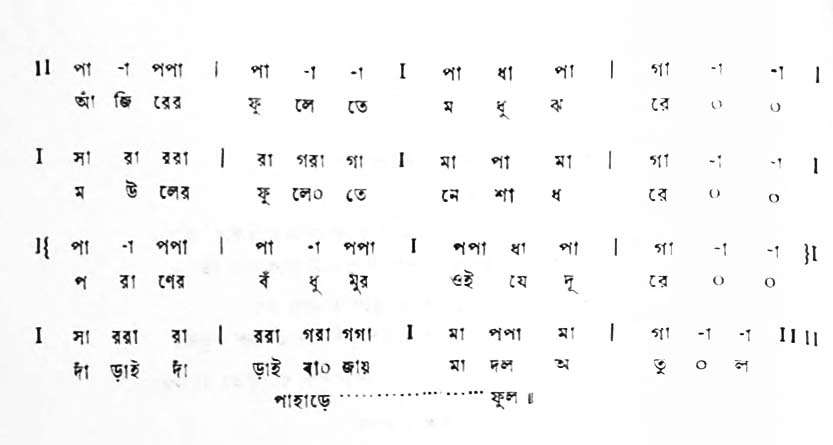 II পা -া পপা | পা -া -া I পা ধা পা | গা -া -া I
আঁ জি রের ফু লে তে ম ধু ঝ রে ০ ০
I সা রা ররা | রা গরা গা I মা পা মা | গা -া -া I
ম উ লের ফু লে০ তে নে শা ধ রে ০ ০
I{ পা -া পপা | পা -া পপা I পপা ধা পা | গা -া -া }I
প রা ণের বঁ ধু মুর ওই যে দূ রে ০ ০
I সা ররা রা | ররা গরা গগা I মা পপা মা | গা -া -া II II
দাঁ ড়াই দাঁ ড়াই বা০ জায় মা দল অ তু ০ ল
পাহাড়ে ..................... ফুল ॥